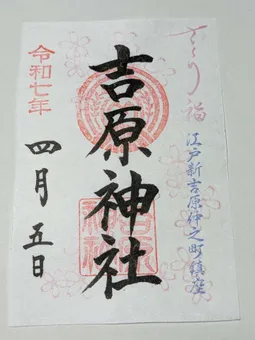 さくら詣
江戸新吉原仲之町鎮座
吉原神社
令和七年
四月五日